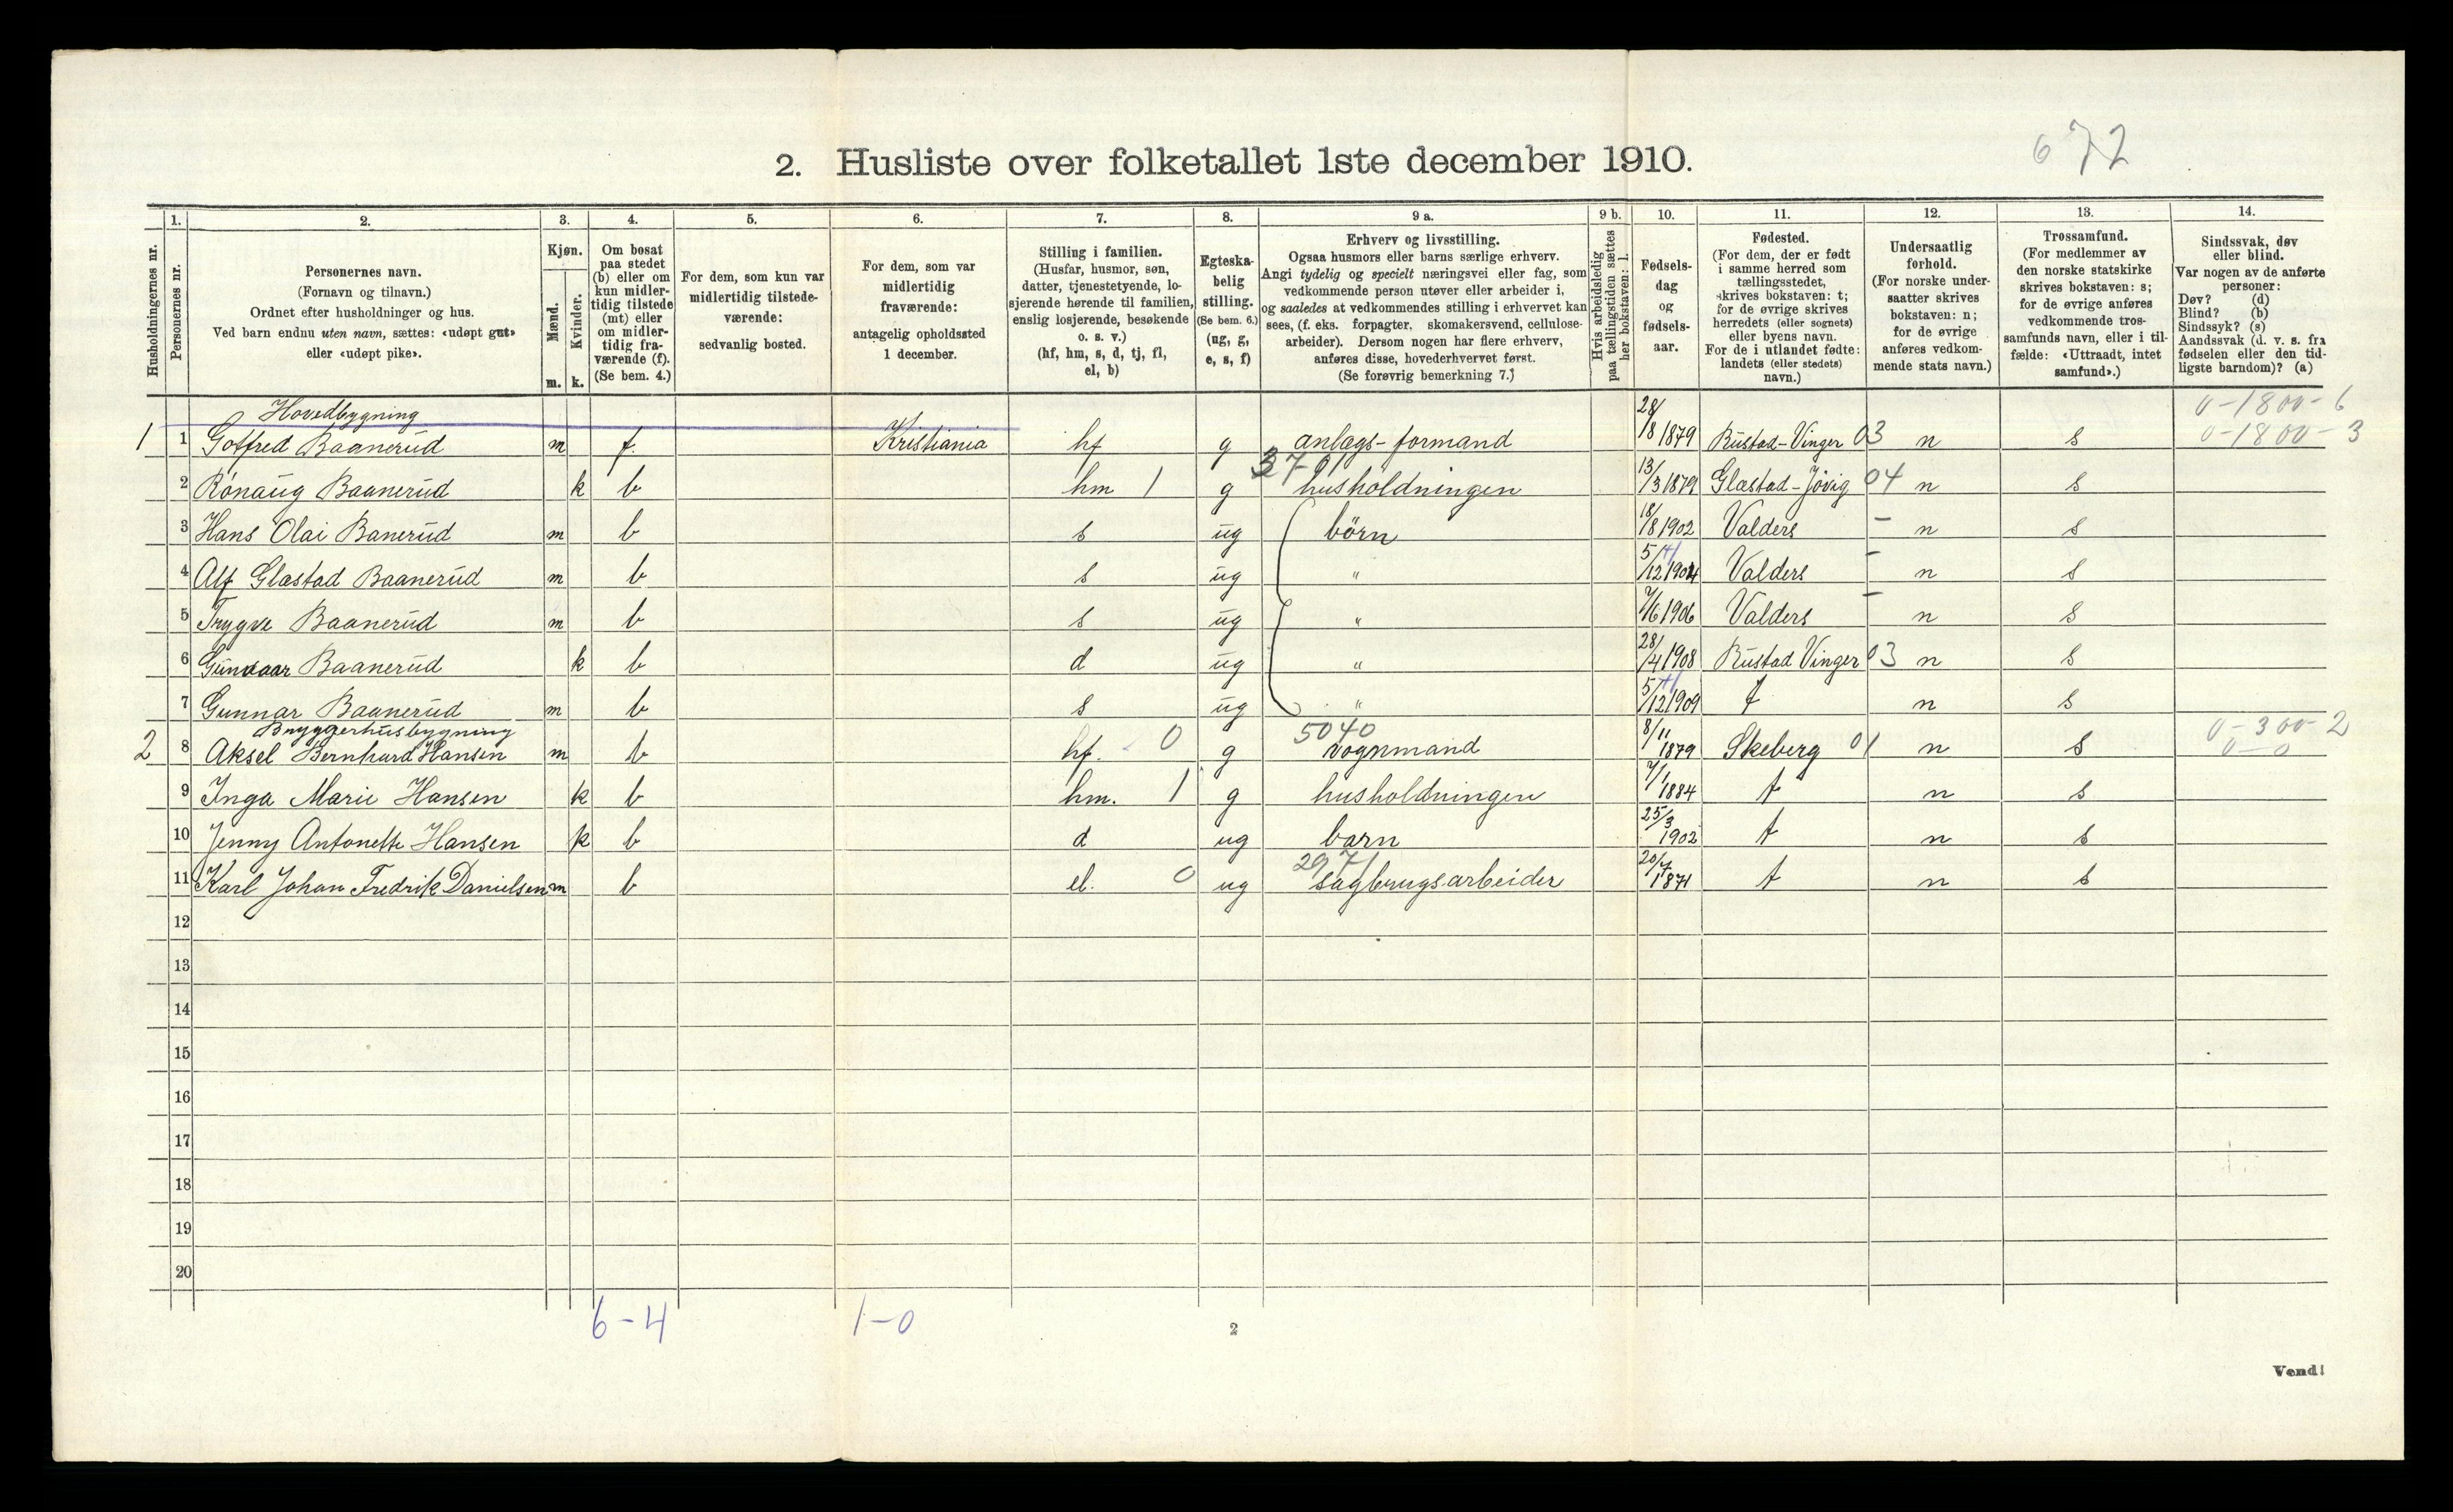 672
2. Husliste over folketallet 1ste december 1910.
Husholdningernes nr.
1.
Personernes nr.
2.
Personernes navn.
(Fornavn og tilnavn.)
Ordnet efter husholdninger og hus.
Ved barn endnu uten navn, sættes: «udøpt gut»
eller «udøpt pike».
3.
Kjøn.
Mænd.
m.
Kvinder.
k.
4.
Om bosat
paa stedet
(b) eller om
kun midler-
tidig tilstede
(mt) eller
om midler-
tidig fra-
værende (f).
(Se bem. 4.)
5.
For dem, som kun var
midlertidig tilstede-
værende:
sedvanlig bosted.
6.
For dem, som var
midlertidig
fraværende:
antagelig opholdssted
1 december.
7.
Stilling i familien.
(Husfar, husmor, søn,
datter, tjenestetyende, lo-
sjerende hørende til familien,
enslig losjerende, besøkende
o. s. v.)
(hf, hm, s, d, tj, fl,
el, b)
8.
Egteska-
belig
stilling.
(Se bem. 6.)
(ug, g,
e, s, f)
9 a.
Erhverv og livsstilling.
Ogsaa husmors eller barns særlige erhverv.
Angi tydelig og specielt næringsvei eller fag, som
vedkommende person utøver eller arbeider i,
og saaledes at vedkommendes stilling i erhvervet kan
sees, (f. eks. forpagter, skomakersvend, cellulose-
arbeider). Dersom nogen har flere erhverv,
anføres disse, hovederhvervet først.
(Se forøvrig bemerkning 7.)
9 b.
Hvis arbeidsledig
paa tællingstiden sættes
her bokstaven: l.
10.
Fødsels-
dag
og
fødsels-
aar.
11.
Fødested.
(For dem, der er født
i samme herred som
tællingsstedet,
skrives bokstaven: t;
for de øvrige skrives
herredets (eller sognets)
eller byens navn.
For de i utlandet fødte:
landets (eller stedets)
navn.)
12.
Undersaatlig
forhold.
(For norske under-
saatter skrives
bokstaven: n;
for de øvrige
anføres vedkom-
mende stats navn.)
13.
Trossamfund.
(For medlemmer av
den norske statskirke
skrives bokstaven: s;
for de øvrige anføres
vedkommende tros-
samfunds navn, eller i til-
fælde: «Uttraadt, intet
samfund».)
14.
Sindssvak, døv
eller blind.
Var nogen av de anførte
personer:
Døv? (d)
Blind? (b)
Sindssyk? (s)
Aandssvak (d. v. s. fra
fødselen eller den tid-
ligste barndom)? (a)
Hovedbygning 0-1800-6
1 1 Gotfred Baanerud m f. Kristiania hf g anlægs-formand 28/8 1879 Rustad-Vinger 03 n s 0-1800-3
2 Rønaug Baanerud k b hm 1 g husholdningen 13/3 1879 Glæstad-Jövig 04 n s
3 Hans Olai Banerud m b s ug börn 18/8 1902 Valders - n s
4 Alf Glæstad Baanerud m b s ug " 5/12 1904 Valders - n s
5 Trygve Baanerud m b s ug " 7/6 1906 Valders - n s
6 Gunvaar Baanerud k b d ug " 28/4 1908 Rustad Vinger 03 n s
7 Gunnar Baanerud m b s ug " 5/12 1909 t n s
Bryggerhusbygning 5040 0-300-2
2 8 Aksel Bernhard Hansen m b hf. 0 g vognmand 8/11 1879 Skeberg 01 n s 0-0
9 Inga Marie Hansen k b hm. 1 g husholdningen 7/1 1884 t n s
10 Jenny Antonette Hansen k b d ug barn 25/3 1902 t n s
11 Karl Johan Fredrik Danielsen m b el. 0 ug sagbrugsarbeider 20/7 1871 t n s
12
13
14
15
16
17
18
19
20
6-4 1-0
2
Vend!